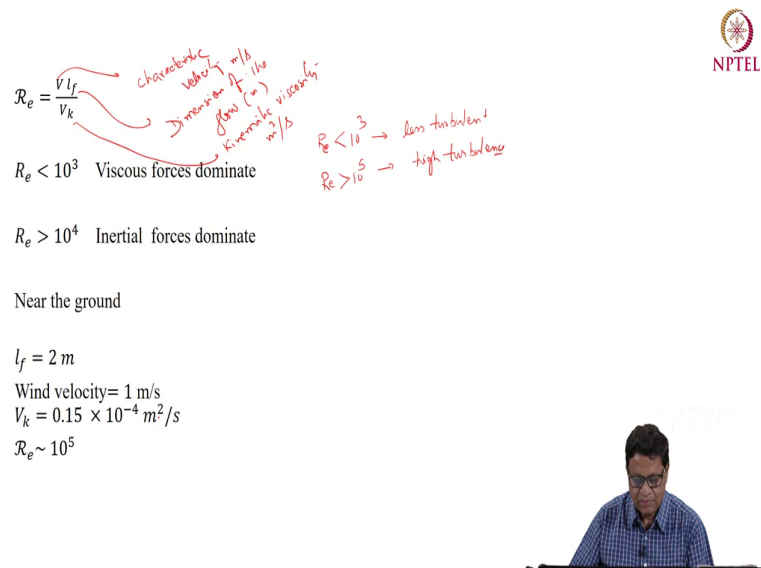 NPTEL
ℛₑ = V l_f / V_k
characteristic
velocity m/s
Dimension of the
flow (m)
Kinematic viscosity
m²/s
Re < 10³ → less turbulent
Re > 10⁵ → high turbulence
Rₑ < 10³ Viscous forces dominate
Rₑ > 10⁴ Inertial forces dominate
Near the ground
l_f = 2 m
Wind velocity= 1 m/s
V_k = 0.15 × 10⁻⁴ m²/s
ℛₑ~ 10⁵